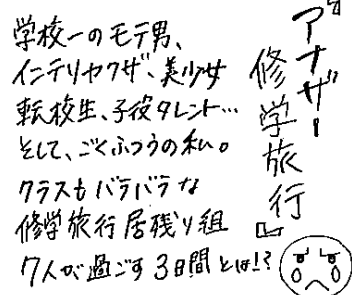 『アナザー修学旅行』
学校一のモテ男、
インテリヤクザ、美少女
転校生、子役タレント…
そして、ごくふつうの私。
クラスもバラバラな
修学旅行居残り組
7人が過ごす3日間とは!?